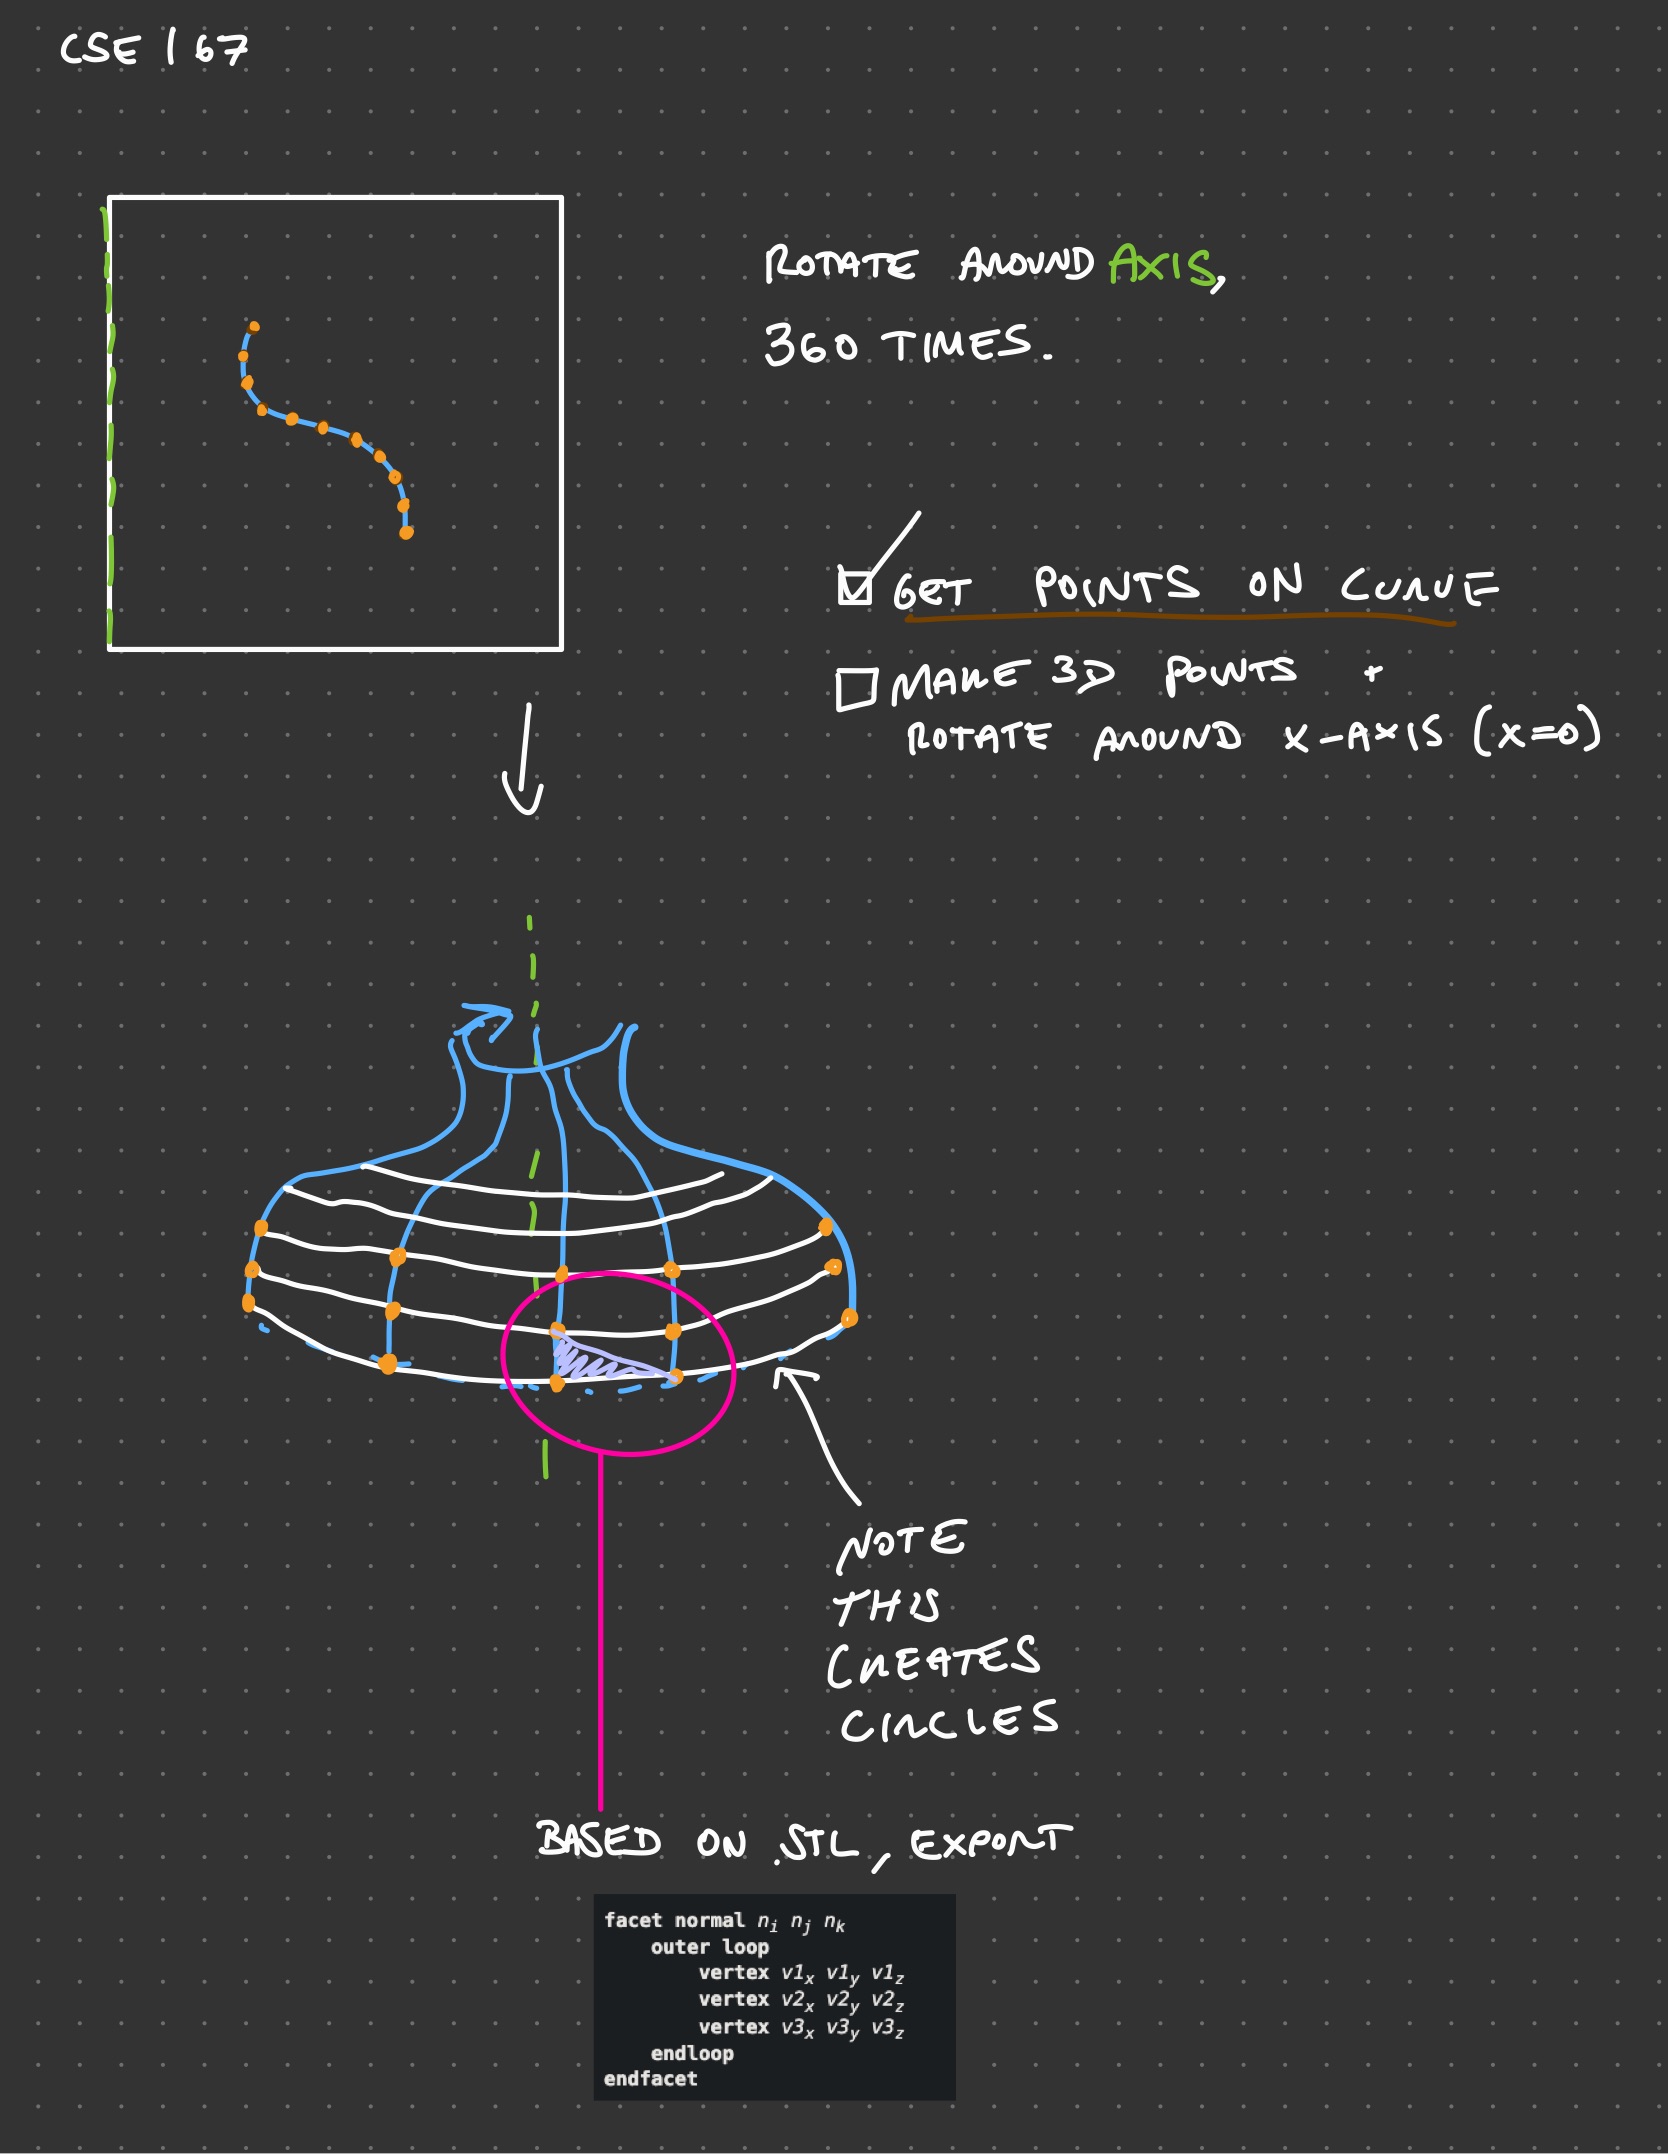 CSE 167
ROTATE AROUND AXIS,
360 TIMES.
GET POINTS ON CURVE
MAKE 3D POINTS +
ROTATE AROUND X-AXIS (X=0)
NOTE
THIS
CREATES
CIRCLES
BASED ON .STL, EXPORT
facet normal nᵢ nⱼ nₖ
outer loop
vertex v1ₓ v1y v1z
vertex v2ₓ v2y v2z
vertex v3ₓ v3y v3z
endloop
endfacet